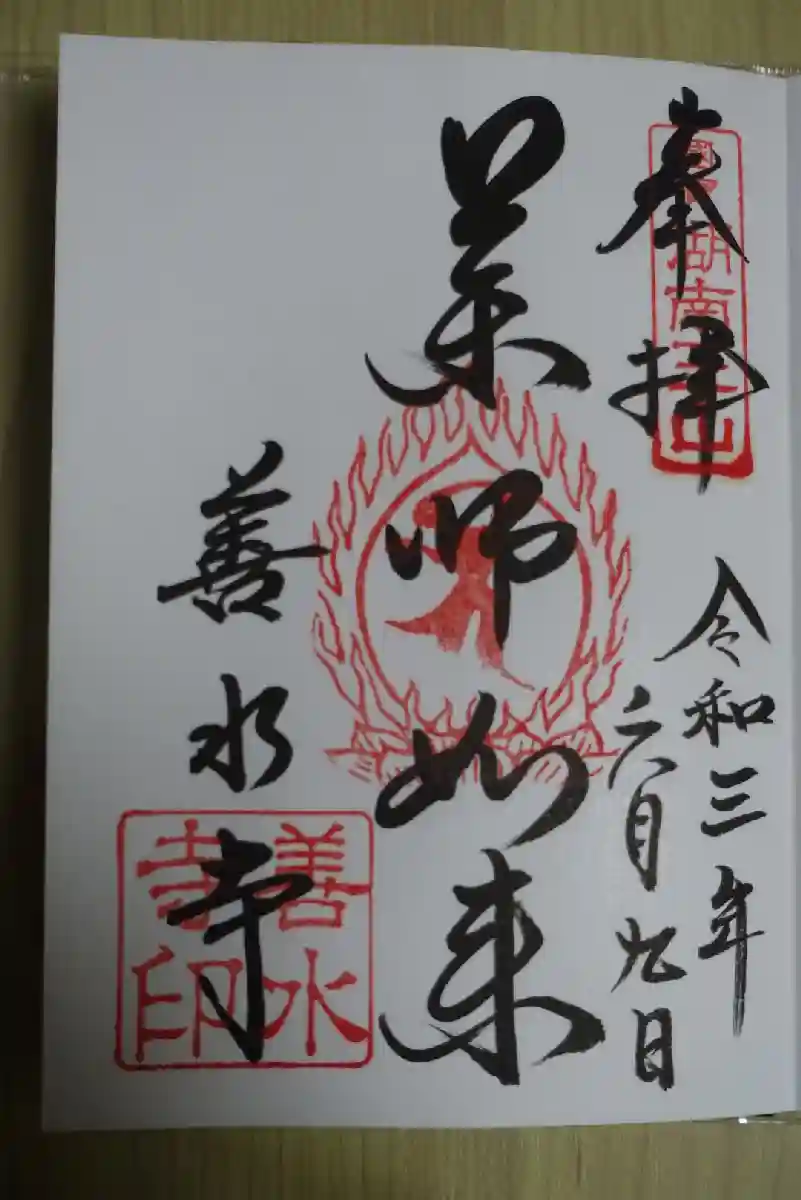 奉拝
湖南三山
令和三年
六月九日
薬師如来
善水寺
善水
寺印